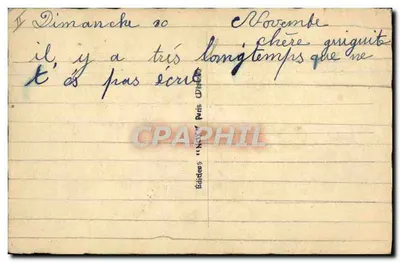 Dimanche 10 Novembe
chère guiguite
il, y a très longtemps que ne
t'és pas écrit
CPAPHIL
Editions "NOYER" Paris